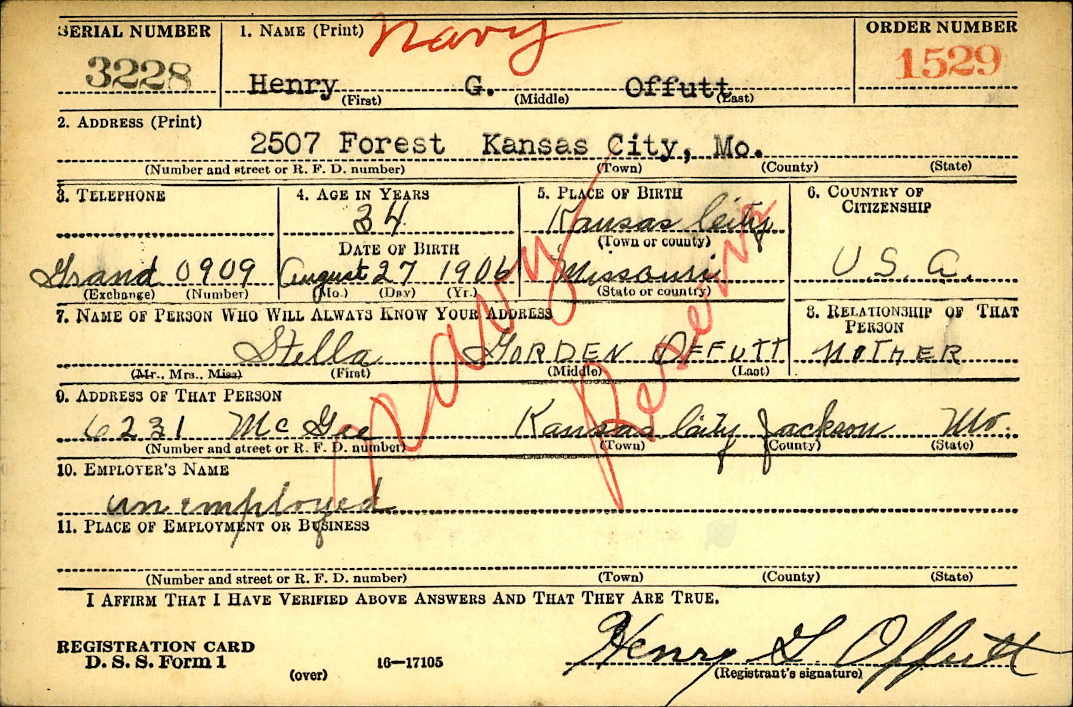 SERIAL NUMBER
3228
1. NAME (Print)
Navy
ORDER NUMBER
1529
Henry G. Offutt
(First) (Middle) (Last)
2. ADDRESS (Print)
2507 Forest Kansas City, Mo.
(Number and street or R. F. D. number) (Town) (County) (State)
3. TELEPHONE
Grand 0909
(Exchange) (Number)
4. AGE IN YEARS
34
DATE OF BIRTH
August 27 1906
(Mo.) (Day) (Yr.)
5. PLACE OF BIRTH
Kansas City
(Town or county)
Missouri
(State or country)
6. COUNTRY OF
CITIZENSHIP
U.S.A.
Navy
Reserve
7. NAME OF PERSON WHO WILL ALWAYS KNOW YOUR ADDRESS
Stella GORDEN OFFUTT
(Mr., Mrs., Miss) (First) (Middle) (Last)
8. RELATIONSHIP OF THAT
PERSON
MOTHER
9. ADDRESS OF THAT PERSON
6231 McGee Kansas City Jackson Mo.
(Number and street or R. F. D. number) (Town) (County) (State)
10. EMPLOYER'S NAME
unemployed
11. PLACE OF EMPLOYMENT OR BUSINESS
(Number and street or R. F. D. number) (Town) (County) (State)
I AFFIRM THAT I HAVE VERIFIED ABOVE ANSWERS AND THAT THEY ARE TRUE.
REGISTRATION CARD
D. S. S. Form 1
(over)
16—17105
Henry G. Offutt
(Registrant's signature)